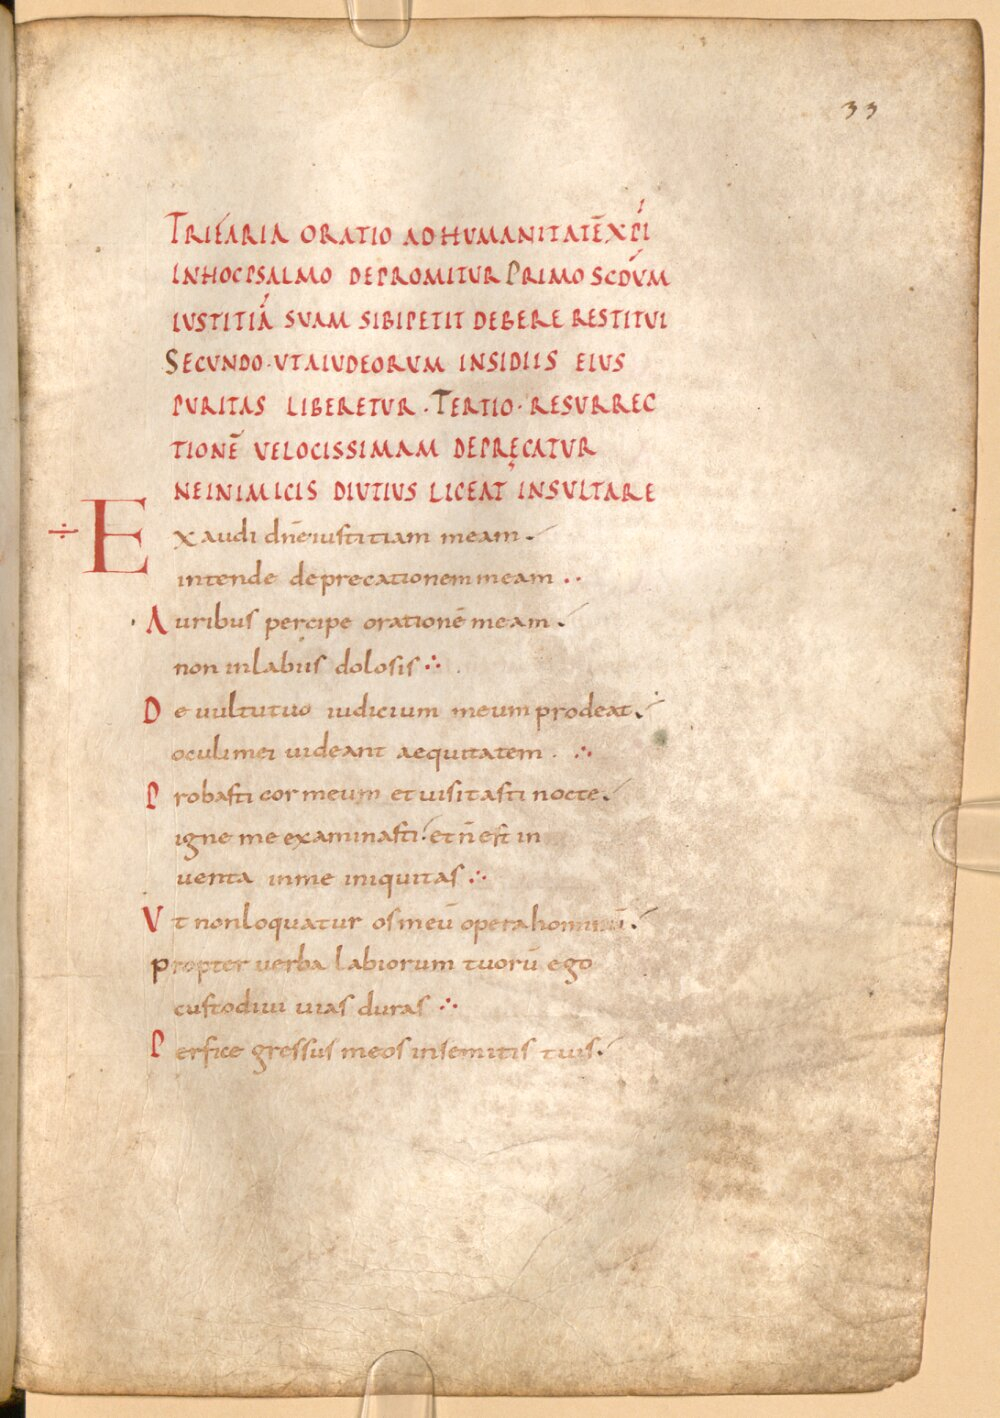 33
TRIFARIA ORATIO AD HUMANITATĒ XPI
IN HOC PSALMO DEPROMITUR PRIMO SCDUM
IUSTITIA SUAM SIBI PETIT DEBERE RESTITUI
SECUNDO · UT A IUDEORUM INSIDIIS EIUS
PURITAS LIBERETUR · TERTIO · RESURREC
TIONĒ VELOCISSIMAM DEPRĘCATUR
NE INIMICIS DIUTIUS LICEAT INSULTARE
÷ Exaudi dn̄e iustitiam meam .
intende deprecationem meam ..
Auribus percipe orationē meam .
non in labiis dolosis ∴
De uultu tuo iudicium meum prodeat .
oculi mei uideant aequitatem . ∴
Probasti cor meum et uisitasti nocte .
igne me examinasti . et n̄ est in
uenta in me iniquitas ∴
Vt non loquatur os meū opera hominū .
propter verba labiorum tuorū ego
custodiui uias duras ∴
Perfice gressus meos in semitis tuis .